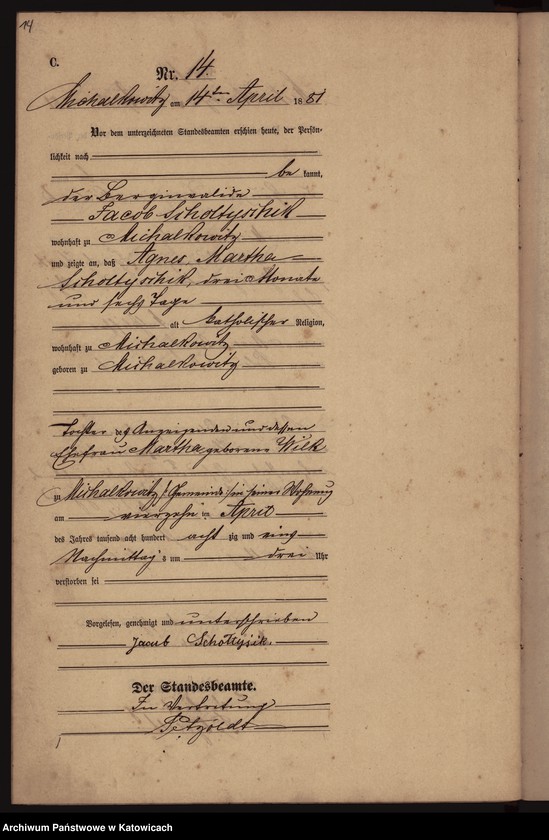 14
C.
Nr. 14.
Michalkowitz am 14ten April 1881
Vor dem unterzeichneten Standesbeamten erschien heute, der Persön-
lichkeit nach
be kannt,
der Berginvalide
Jacob Scholtyschik
wohnhaft zu Michalkowitz
und zeigte an, daß Agnes Martha
Scholtyschik, drei Monate
und sechs Tage
alt katholischer Religion,
wohnhaft zu Michalkowitz
geboren zu Michalkowitz
Tochter des Anzeigenden und dessen
Ehefrau Martha geborene Wilk
zu Michalkowitz /:Gemeinde:/ in seiner Wohnung
am vierzehn ten April
des Jahres tausend acht hundert acht zig und eins
Nachmittag s um drei Uhr
verstorben sei
Vorgelesen, genehmigt und unterschrieben
Jacub Scholtyśik.
Der Standesbeamte.
In Vertretung
Petzoldt
Archiwum Państwowe w Katowicach